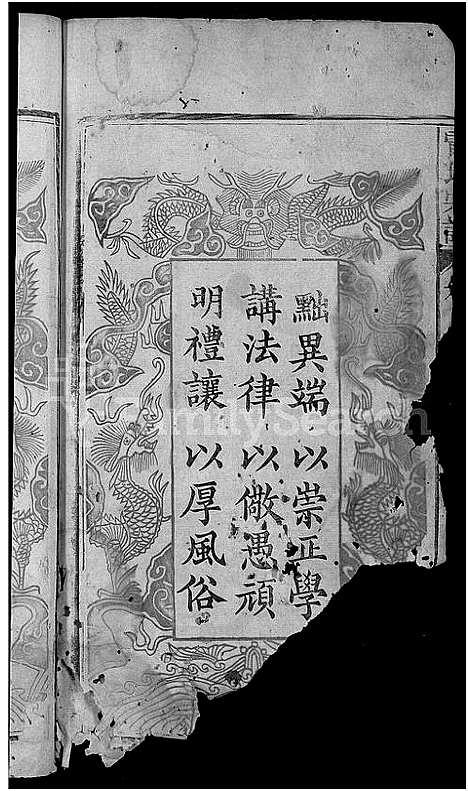 黜異端以崇正學
講法律以儆愚頑
明禮讓以厚風俗
FamilySearch